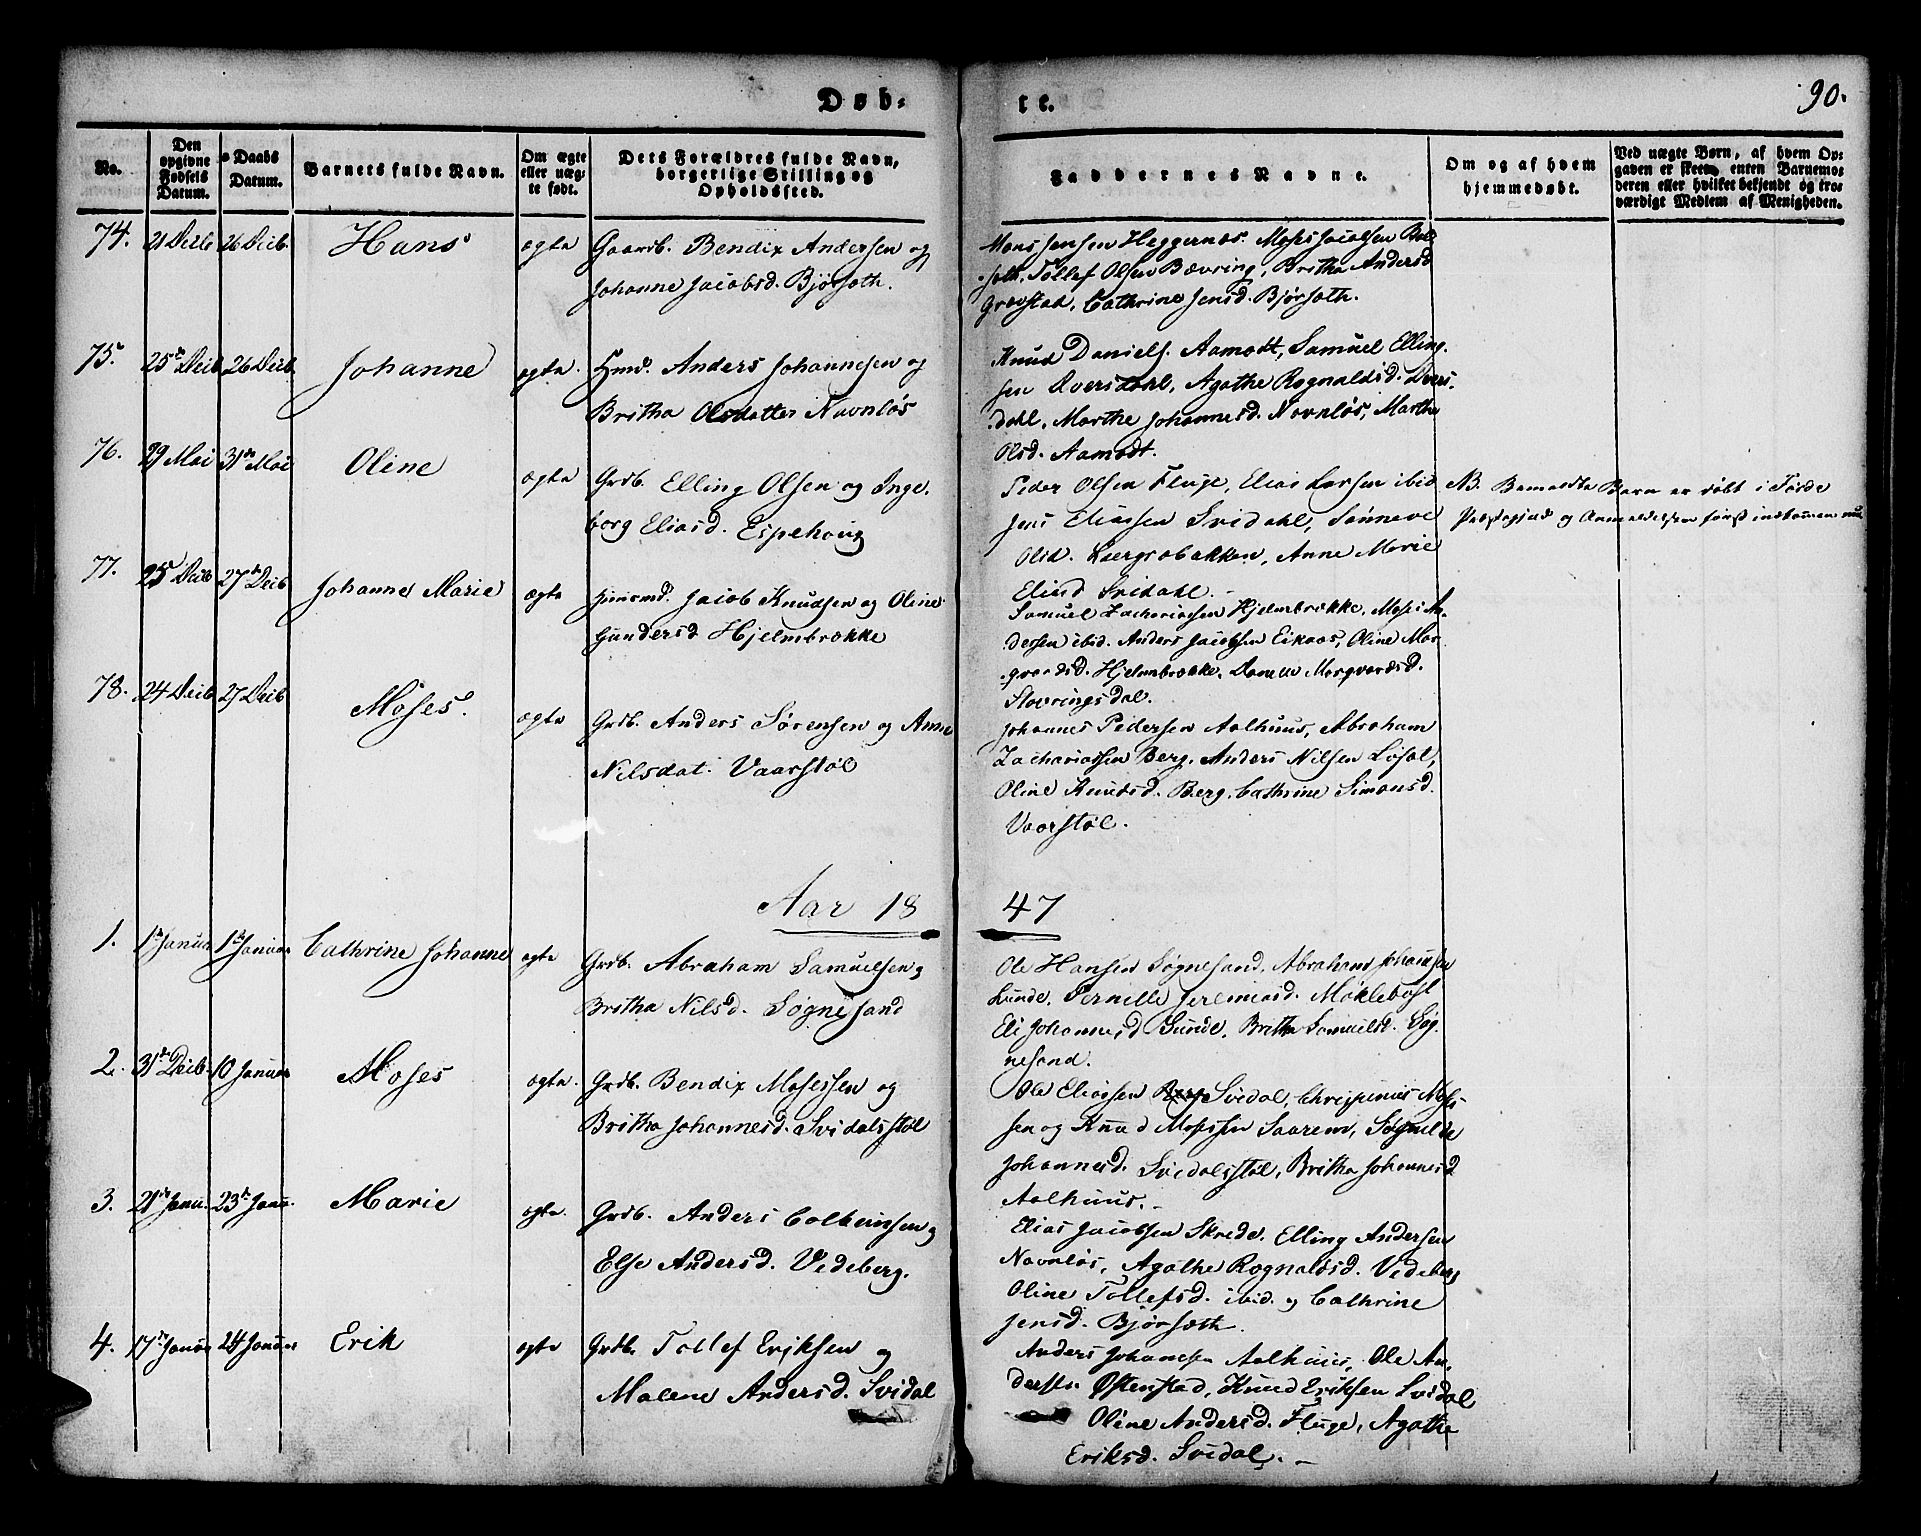 Døb-
te.
90.
No.
Den opgivne Fødsels Datum.
Daabs Datum.
Barnets fulde Navn.
Om ægte eller uægte født.
Dets Forældres fulde Navn, borgerlige Stilling og Opholdssted.
Faddernes Navne.
Om og af hvem hjemmedøbt.
Ved uægte Børn, af hvem Opgaven er skeet, enten Barnemoderen eller hvilket bekjendt og troværdigt Medlem af Menigheden.
74. 21 Decb 26 Decb. Hans ægte Gaardb. Bendix Andersen og
Johanne Jacobsd. Bjørsæth.
Mons Jensen Heggernæs. Moses Jacobsen
Tollef Olsen Bævring, Britha Andersd
Grovstad, Cathrine Jensd. Bjørsæth.
75. 25de Decb 26 Decb Johanne ægte. Hmd. Anders Johannesen og
Britha Olsdatter Navnløs
Knud Daniels. Aamodt, Samuel Elling-
sen Dversdahl, Agathe Rognaldsd. Dvers-
dahl, Marthe Johannesd. Navnløs, Marthe
Olsd. Aamodt.
76. 29 Mai 31te Mai Oline ægte Grdb. Elling Olsen og Inge-
borg Eliasd. Espehoug
Peder Olsen Fluge, Elias Larsen ibid
Jens Eliassen Svidahl, Sønneve
Olsd. Bakken, Anne Marie
Eliasd Svidahl. -
NB. Bemældte Barn er døbt i Førde
Præstegjeld og Anmældelsen først indkommen nu
77. 25de Decb 27de Decb Johanne Marie ægte Huusmd. Jacob Knudsen og Oline
Gundersd Hjelmbrække
Samuel Zachariassen Hjelmbrække, Moses An-
dersen ibid. Anders Jacobsen Eikaas, Oline Mar-
gvardsd. Hjelmbrække, Margvardsd.
Stavringsdal.
78. 24 Decb 27 Decb Moses. ægte Grdb. Anders Sørensen og Anne
Nilsdat. Vaarstøl
Johannes Pedersen Aalhuus, Abraham
Zachariassen Berg, Anders Nilsen Løsøl,
Oline Knudsd. Berg, Cathrine Simonsd.
Vaarstøl.
Aar 18
47
1. 1te Januar 1te Januar Cathrine Johanne ægte Grdb. Abraham Samuelsen og
Britha Nilsd. Søgnesand
Ole Hansen Søgnesand, Abraham Johannsen
Sunde, Pernille Jeremiasd. Myklebøst
Eli Johannesd Sunde, Britha Samuelsd. Søg-
nesand.
2. 31te Decb. 10 Januar Moses ægte. Grdb. Bendix Mosessen og
Britha Johannesd. Svidalsstøl
Ole Eliassen Svidal, Moses-
sen og Knud Mosessen Saarem, Søgnelde
Johannesd. Svidalsstøl, Britha Johannesd
Aalhuus. -
3. 21de Janu. 23de Janu. Marie ægte. Grdb. Anders Colbeinsen og
Else Andersd. Vedeberg.
Elias Jacobsen Skrede, Elling Andersen
Navnløs, Agathe Rognaldsd. Vedeberg
Oline Tollefsd. ibid. og Cathrine
Jensd. Bjørsæth.
4. 17de Januar 24 Januar Erik ægte Grdb. Tollef Eriksen og
Malene Andersd. Svidal
Anders Johanesen Aalhuus, Ole An-
dersen Østenstad, Knud Eriksen Svidal
Oline Andersd. Fluge, Agathe
Eriksd. Svidal. -